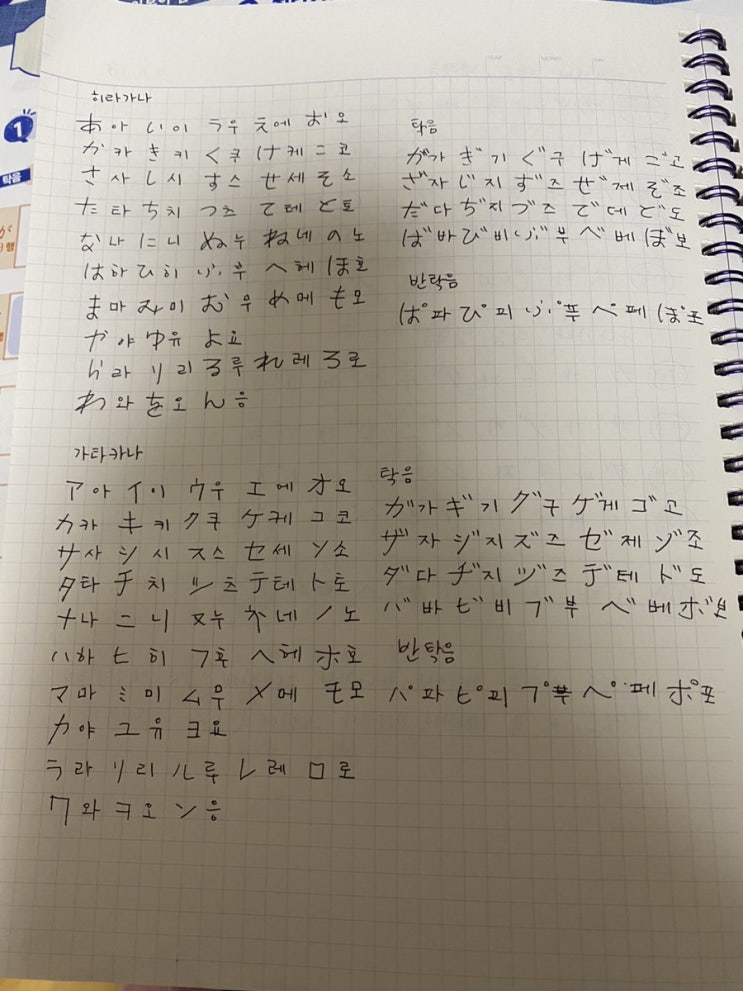 히라가나
あ아 い이 う우 え에 お오
か카 き키 く쿠 け케 こ코
さ사 し시 す스 せ세 そ소
た타 ち치 つ츠 て테 と토
な나 に니 ぬ누 ね네 の노
は하 ひ히 ふ후 へ헤 ほ호
ま마 み미 む무 め메 も모
や야 ゆ유 よ요
ら라 り리 る루 れ레 ろ로
わ와 を오 ん응
탁음
が가 ぎ기 ぐ구 げ게 ご고
ざ자 じ지 ず즈 ぜ제 ぞ조
だ다 ぢ지 づ즈 で데 ど도
ば바 び비 ぶ부 べ베 ぼ보
반탁음
ぱ파 ぴ피 ぷ푸 ぺ페 ぽ포
가타카나
ア아 イ이 ウ우 エ에 オ오
カ카 キ키 ク쿠 ケ케 コ코
サ사 シ시 ス스 セ세 ソ소
タ타 チ치 ツ츠 テ테 ト토
ナ나 ニ니 ヌ누 ネ네 ノ노
ハ하 ヒ히 フ후 ヘ헤 ホ호
マ마 ミ미 ム무 メ메 モ모
ヤ야 ユ유 ヨ요
ラ라 リ리 ル루 レ레 ロ로
ワ와 ヲ오 ン응
탁음
ガ가 ギ기 グ구 ゲ게 ゴ고
ザ자 ジ지 ズ즈 ゼ제 ゾ조
ダ다 ヂ지 ヅ즈 デ테 ド도
バ바 ビ비 ブ부 ベ베 ボ보
반탁음
パ파 ピ피 プ푸 ペ페 ポ포
1
탁음
が
행